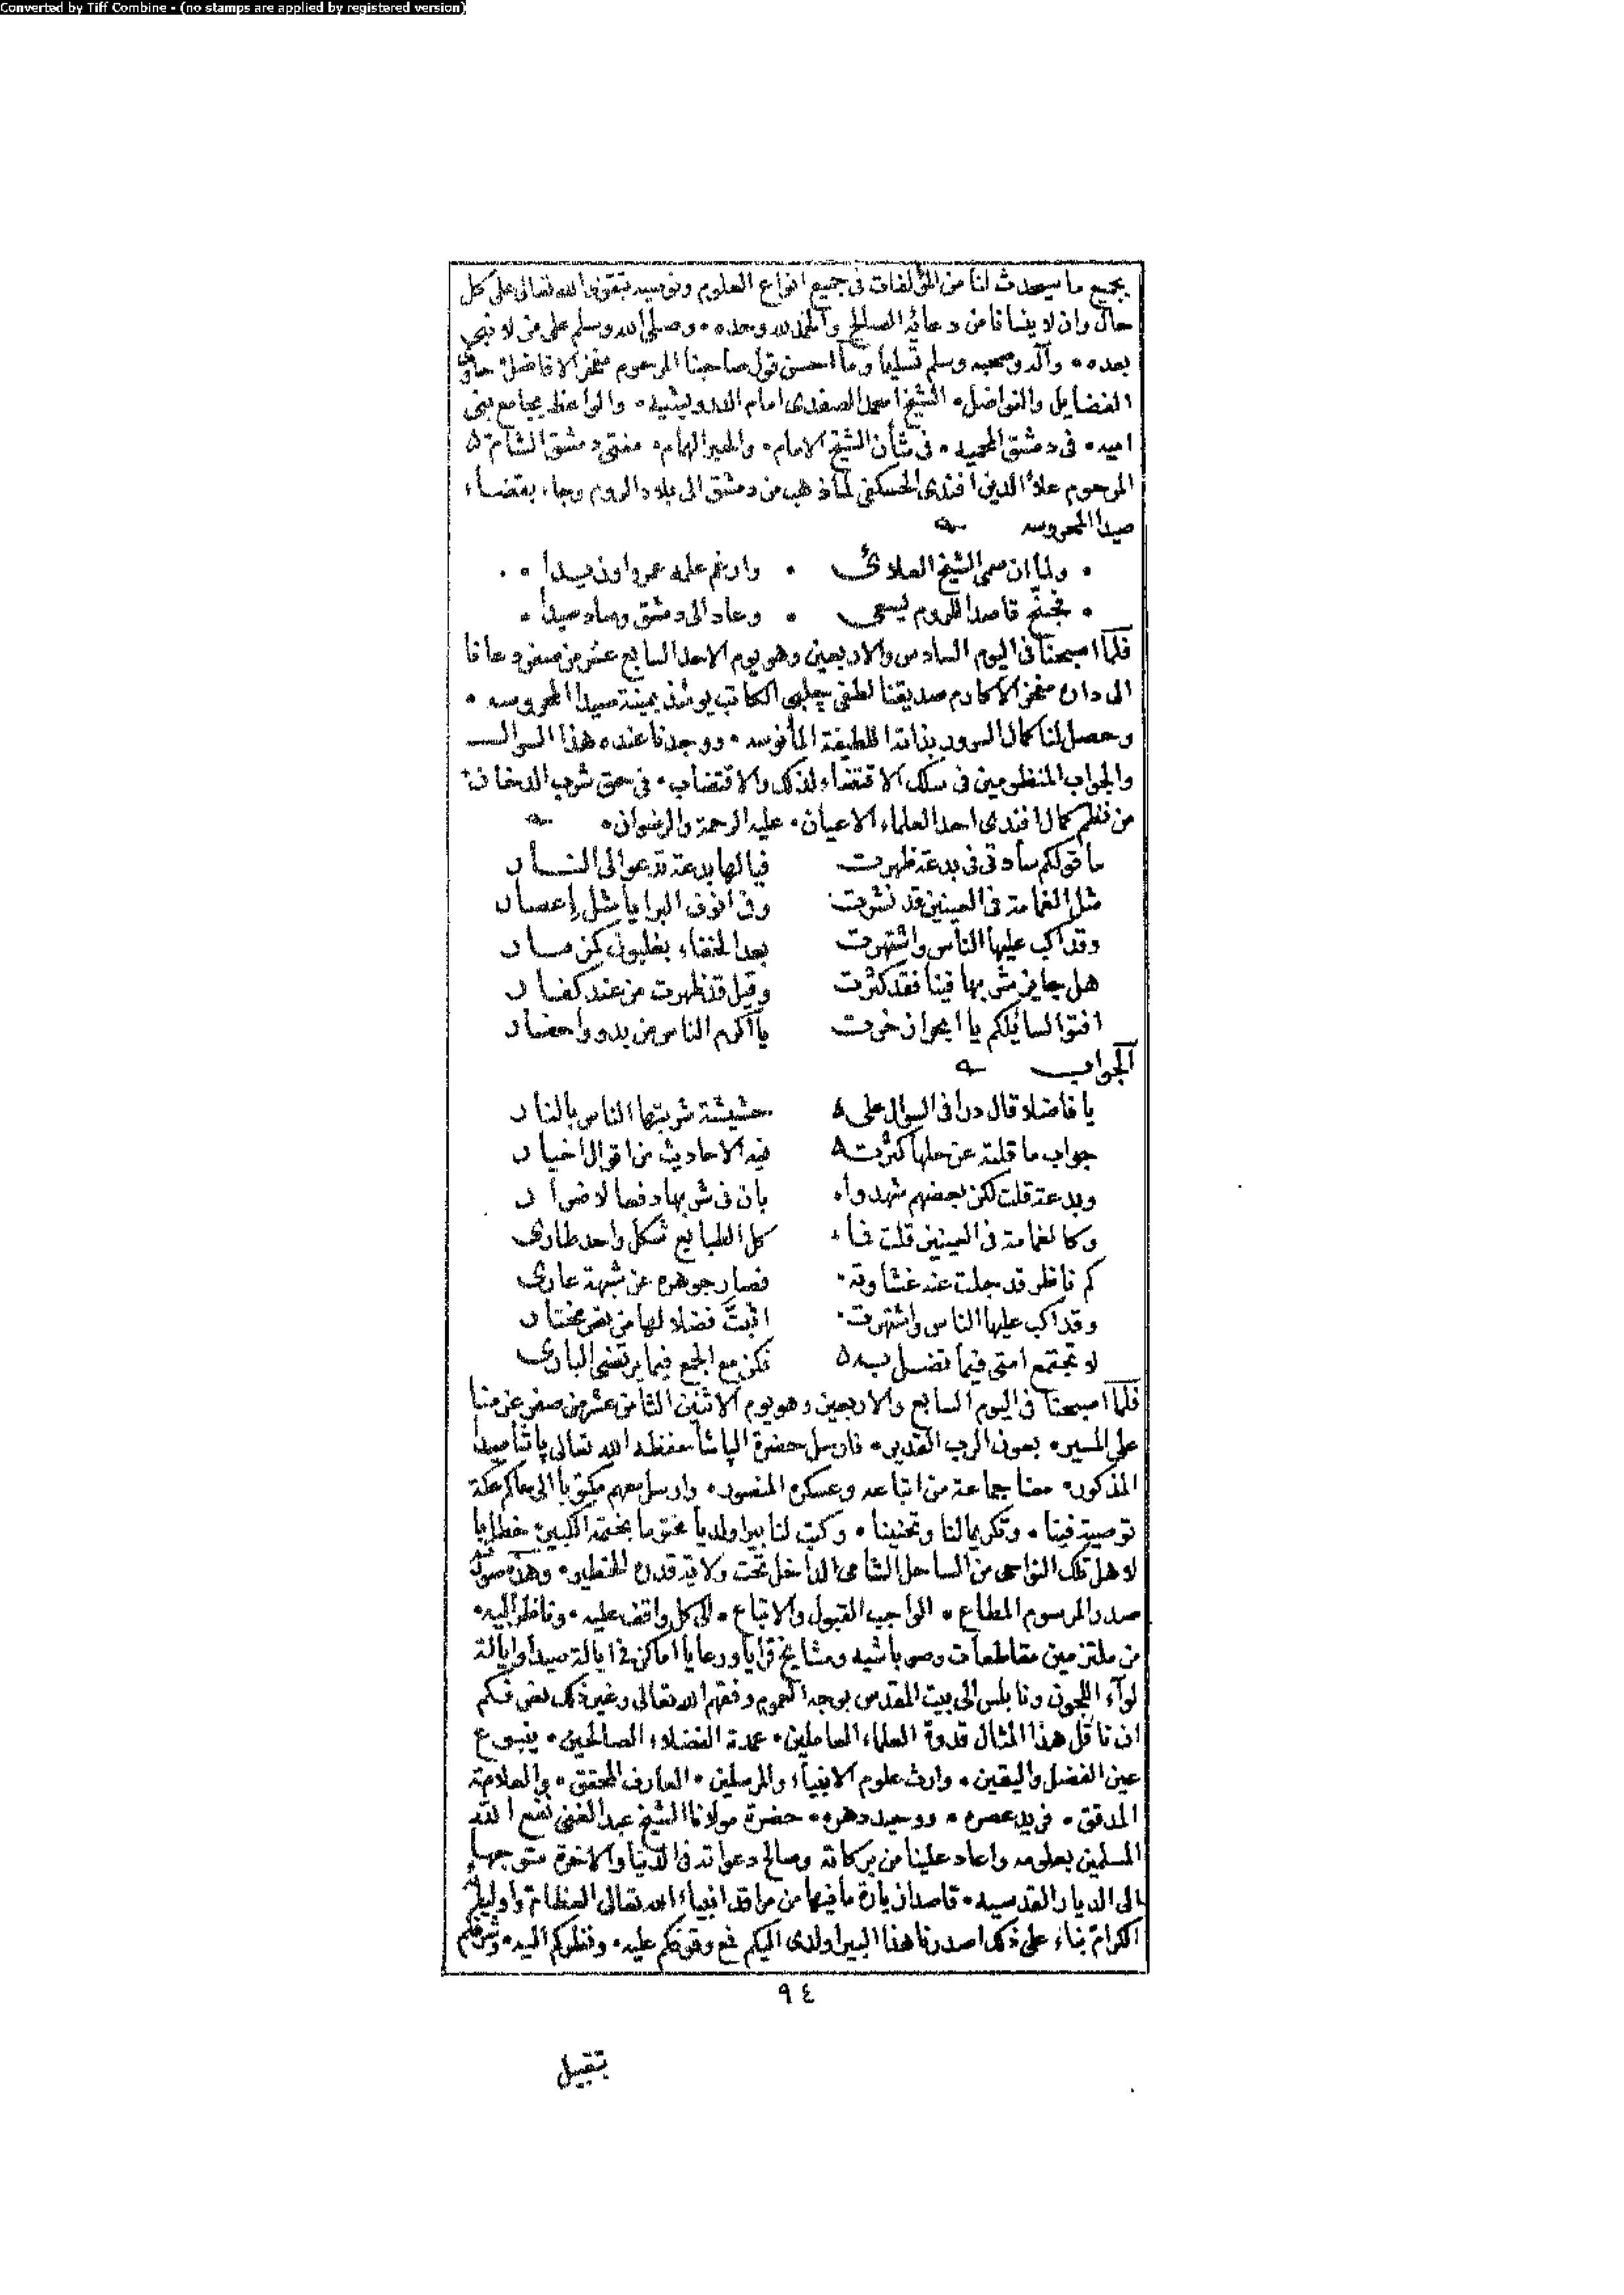 Converted by Tiff Combine - (no stamps are applied by registered version)
بجميع ما سيحدث لنا من المؤلفات في جميع انواع العلوم ونوصيه بتقوى الله تعالى على كل
حال وان لا ينسانا من دعائه الصالح والحمد لله وحده • وصلى الله وسلم على من لا نبي
بعده • وآله وصحبه وسلم تسليما وما احسن قول صاحبنا المرحوم مفخر الافاضل حاوي
الفضايل والفواضل • الشيخ احمد الصفدي امام الدرويشيه • والواعظ بجامع بني
اميه • في دمشق المحميه • في شأن الشيخ الامام • والحبر الهمام • مفتي دمشق الشام
المرحوم علاء الدين افندي الحسكفي لما ذهب من دمشق الى بلاد الروم وجاء بقضاء
صيدا المحروسه
• ولما ان سمى الشيخ العلائي • وارغم علمه عمروا وزيدا •
• تجشم قاصدا للروم يسعى • وعاد الى دمشق وصاد صيدا •
فلما اصبحنا في اليوم السادس والاربعين وهو يوم الاحد السابع عشر من صفر دعانا
الى داره مفخر الاكارم صديقنا لطفي چلبي الكاتب يومئذ بمينة صيدا المحروسه •
وحصل لنا كمال السرور بذاته اللطيفة المأنوسه • ووجدنا عنده هذا السوال
والجواب المنظومين في سلك الاقتضاء لذلك والاقتضاب • في حق شرب الدخان
من نظم كمال افندي احد العلماء الاعيان • عليه الرحمة والرضوان •
ما قولكم سادتي في بدعة ظهرت فيالها بدعة تدعو الى النار
مثل الغمامة في العينين قد نشرت وفي انوف البرايا مثل إعصار
وقد اكب عليها الناس واشتهرت بعد الخفاء بغليون كمزمار
هل جايز شربها فينا فقد كثرت وقيل قد ظهرت من عند كفار
افتوا لسائلكم يا ابحرا زخرت يا اكرم الناس من بدو واحضار
الجواب
يا فاضلا قال درا في السوال على حشيشة شربتها الناس بالنار
جواب ما قلته عن حلها كثرت فيه الاحاديث من اقوال اخيار
وبدعة قلت لكن بعضهم شهدوا بان في شربها دفعا لاضرار
وكالغمامة في العينين قلت فما كل الطبايع شكل واحد طاري
كم ناظر قد جلت عنه غشاوته فصار جوهره عن شبهة عاري
وقد اكب عليها الناس واشتهرت اثبتَّ فضلا لها من نص مختار
لا تجتمع امتي فيما تضل به فكن مع الجمع فيما يرتضي الباري
فلما اصبحنا في اليوم السابع والاربعين وهو يوم الاثنين الثامن عشر من صفر عزمنا
على المسير • بعون الرب القدير • فارسل حضرة الباشا حفظه الله تعالى باشا صيدا
المذكور • معنا جماعة من اتباعه وعسكره المنصور • وارسل معهم مكتوبا الى حاكم عكة
توصية فينا • وتكريما لنا وتحنينا • وكتب لنا بيراولديا مختوما بختمه الكبير خطابا
لاهل تلك النواحي من الساحل الشامي الداخل تحت ولاية قدره الخطير • وهذه صورته
صدر المرسوم المطاع • الواجب القبول والاتباع • الى كل واقف عليه • وناظر اليه •
من ملتزمين مقاطعات وصوباشيه ومشايخ قرايا ورعايا اماكن في ايالة صيدا وايالة
لوآء اللجون ونابلس الى بيت المقدس بوجه العموم وفقهم الله تعالى وغير ذلك نعرفكم
ان ناقل هذا المثال قدوة العلماء العاملين • عمدة الفضلاء الصالحين • ينبوع
عين الفضل واليقين • وارث علوم الانبياء والمرسلين • العارف المحقق • والعلامة
المدقق • فريد عصره • ووحيد دهره • حضرة مولانا الشيخ عبد الغني نفع الله
المسلمين بعلومه واعاد علينا من بركاته وصالح دعواته في الدنيا والاخرة متوجها
الى الديار القدسيه • قاصدا زيارة ما فيها من مراقد انبياء الله تعالى العظام واوليائه
الكرام بناء على ذلك اصدرنا هذا البيراولدي اليكم فمع وقوفكم عليه • ونظركم اليه •
٩٤
بتقبيل